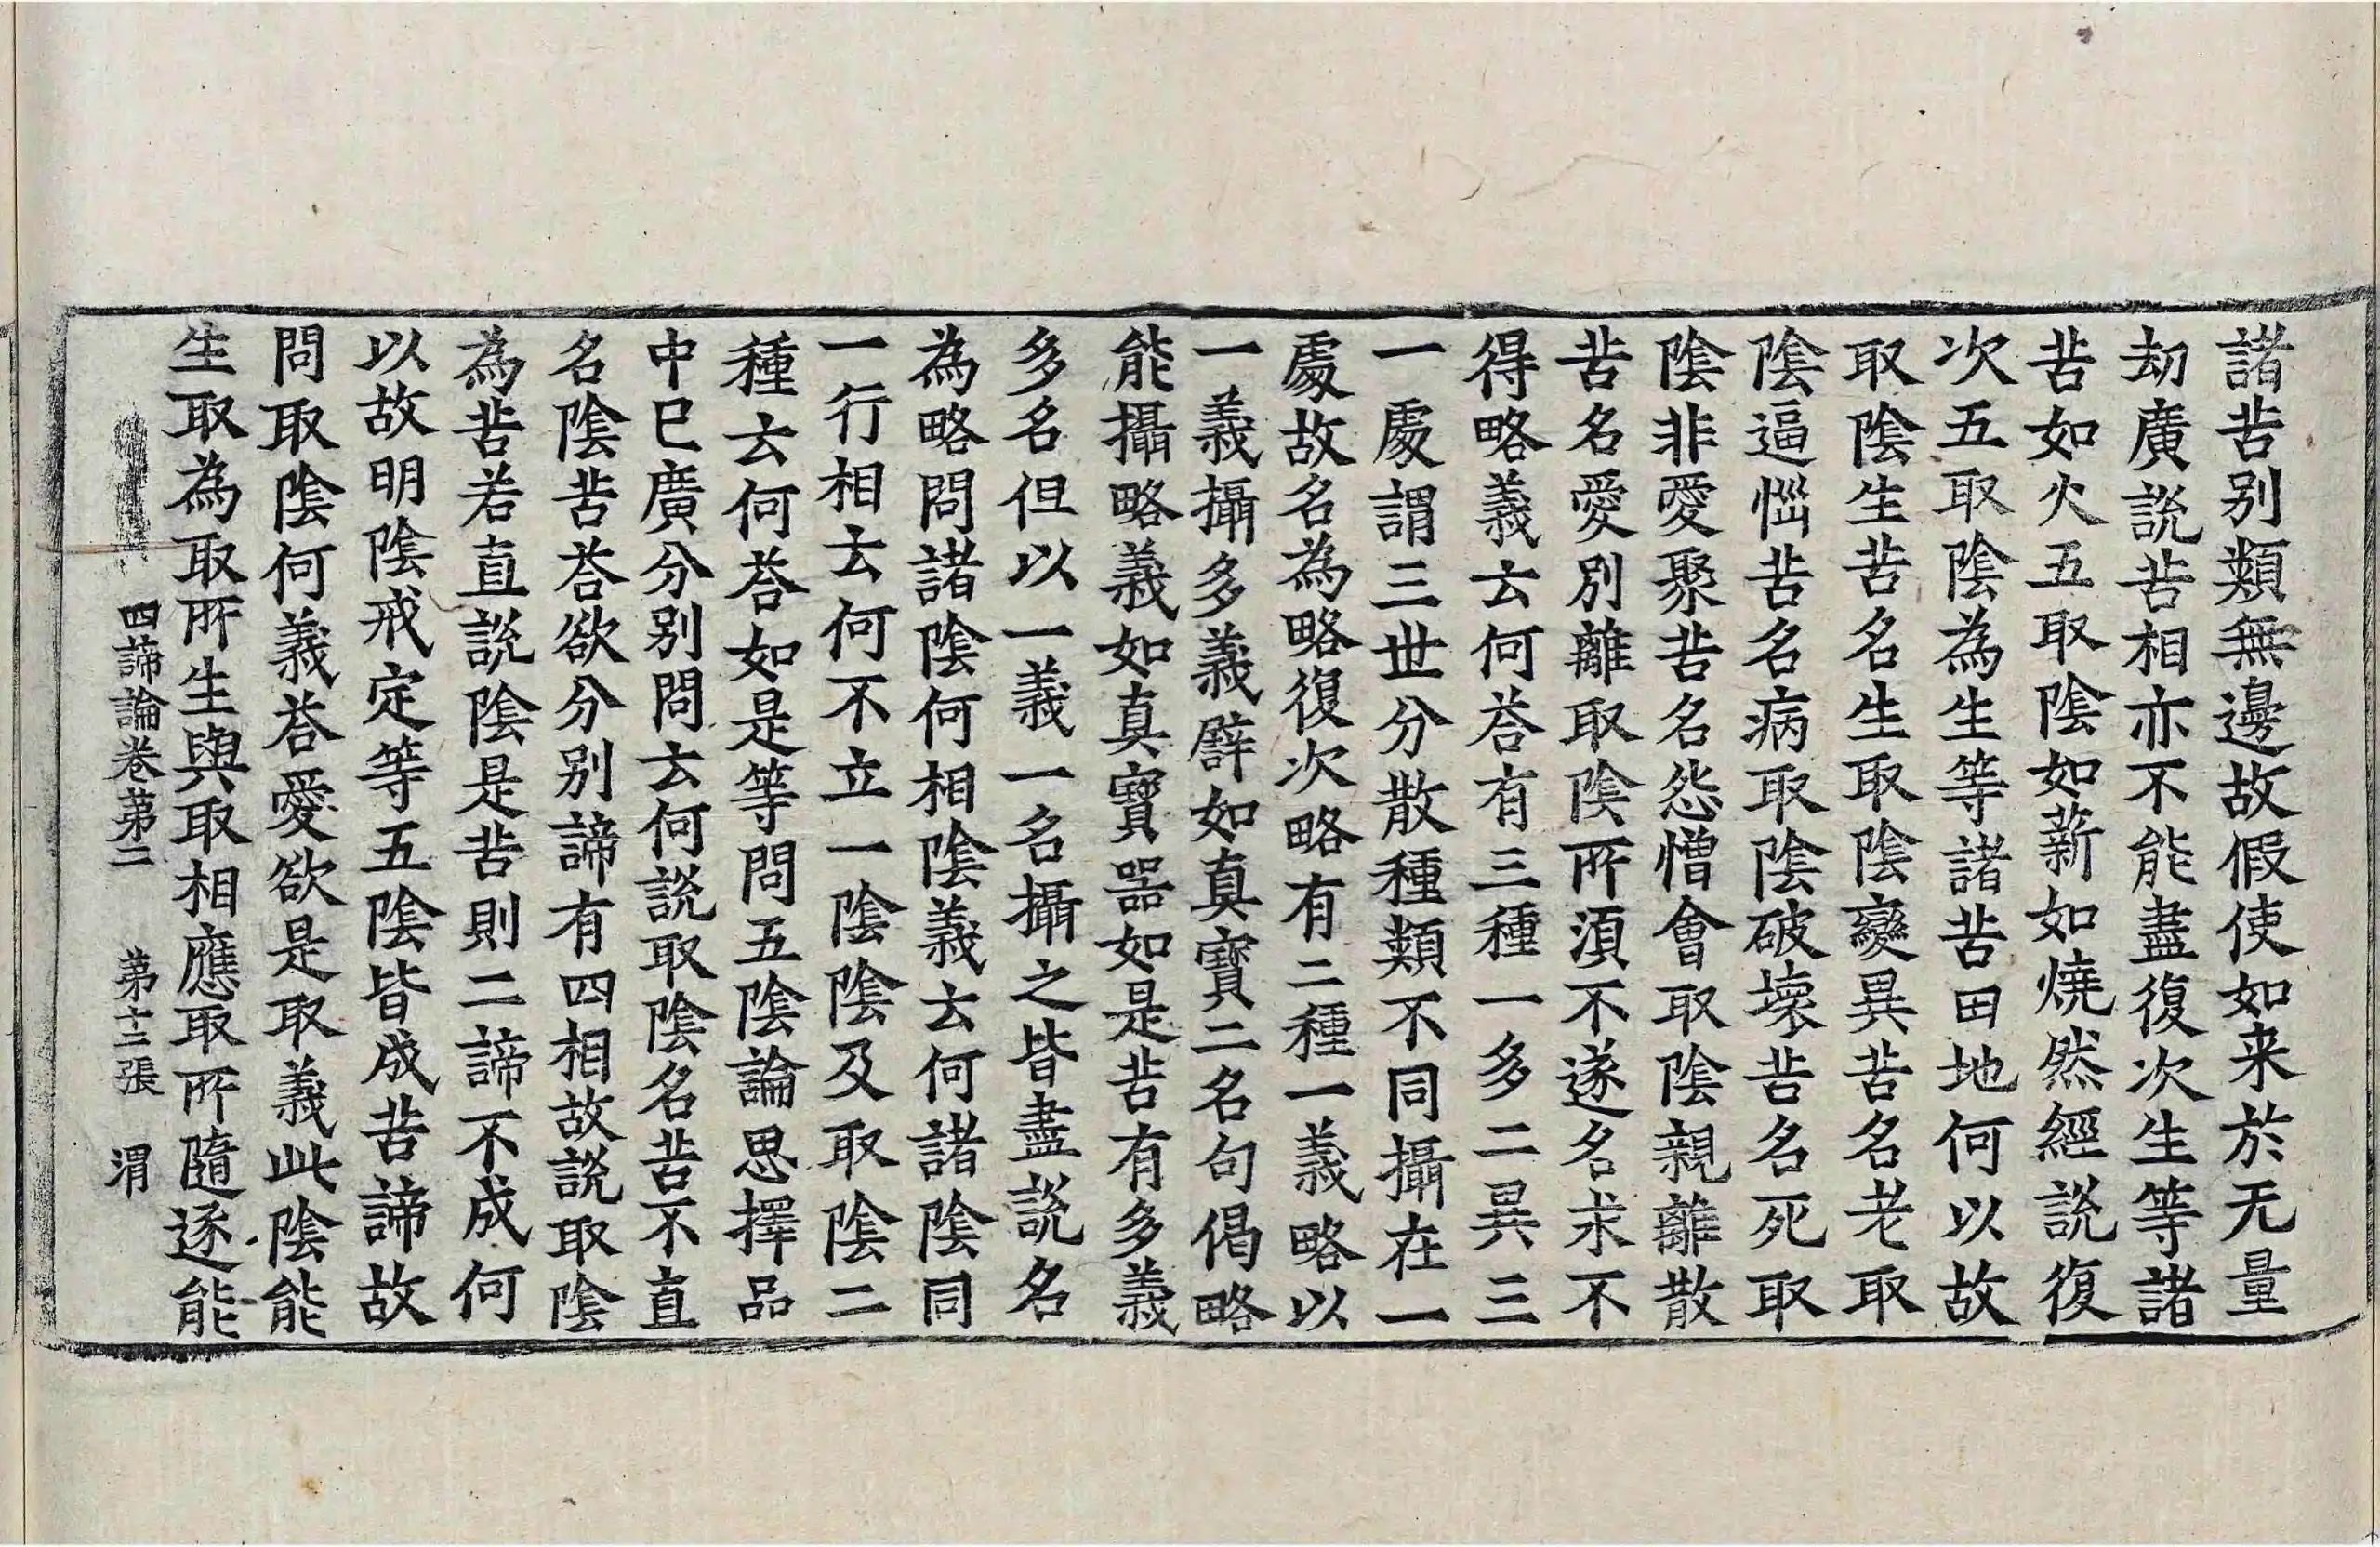 諸苦别類無邊故假使如来於无量
劫廣說苦相亦不能盡復次生等諸
苦如火五取陰如薪如燒然經說復
次五取陰為生等諸苦田地何以故
取陰生苦名生取陰變異苦名老取
陰逼惱苦名病取陰破壞苦名死取
陰非愛聚苦名怨憎會取陰親離散
苦名愛別離取陰所須不遂名求不
得略義云何荅有三種一多二異三
一處謂三世分散種類不同攝在一
處故名為略復次略有二種一義略以
一義攝多義譬如真寳二名句偈略
能攝略義如真寳器如是苦有多義
多名但以一義一名攝之皆盡說名
為略問諸陰何相陰義云何諸陰同
一行相云何不立一陰陰及取陰二
種云何荅如是等問五陰論思擇品
中已廣分别問云何說取陰名苦不直
名陰苦荅欲分别諦有四相故說取陰
為苦若直說陰是苦則二諦不成何
以故明陰戒定等五陰皆成苦諦故
問取陰何義荅愛欲是取義此陰能
生取為取所生與取相應取所隨逐能
四諦論卷第二 第十三張 渭